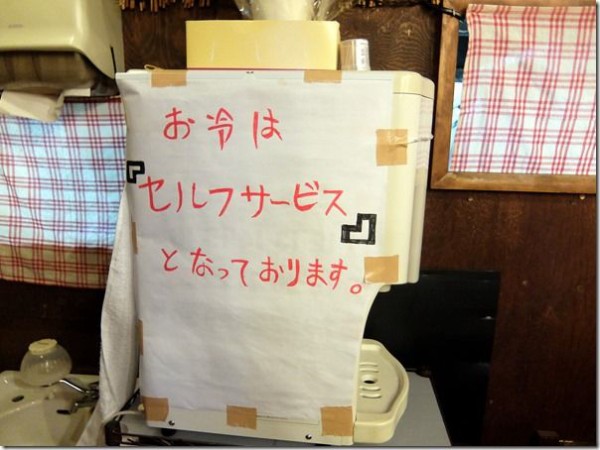 お冷は
『セルフサービス』
となっております。